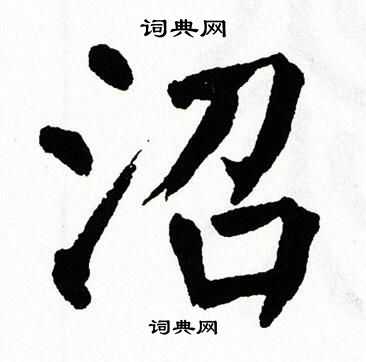 词典网
沼
词典网